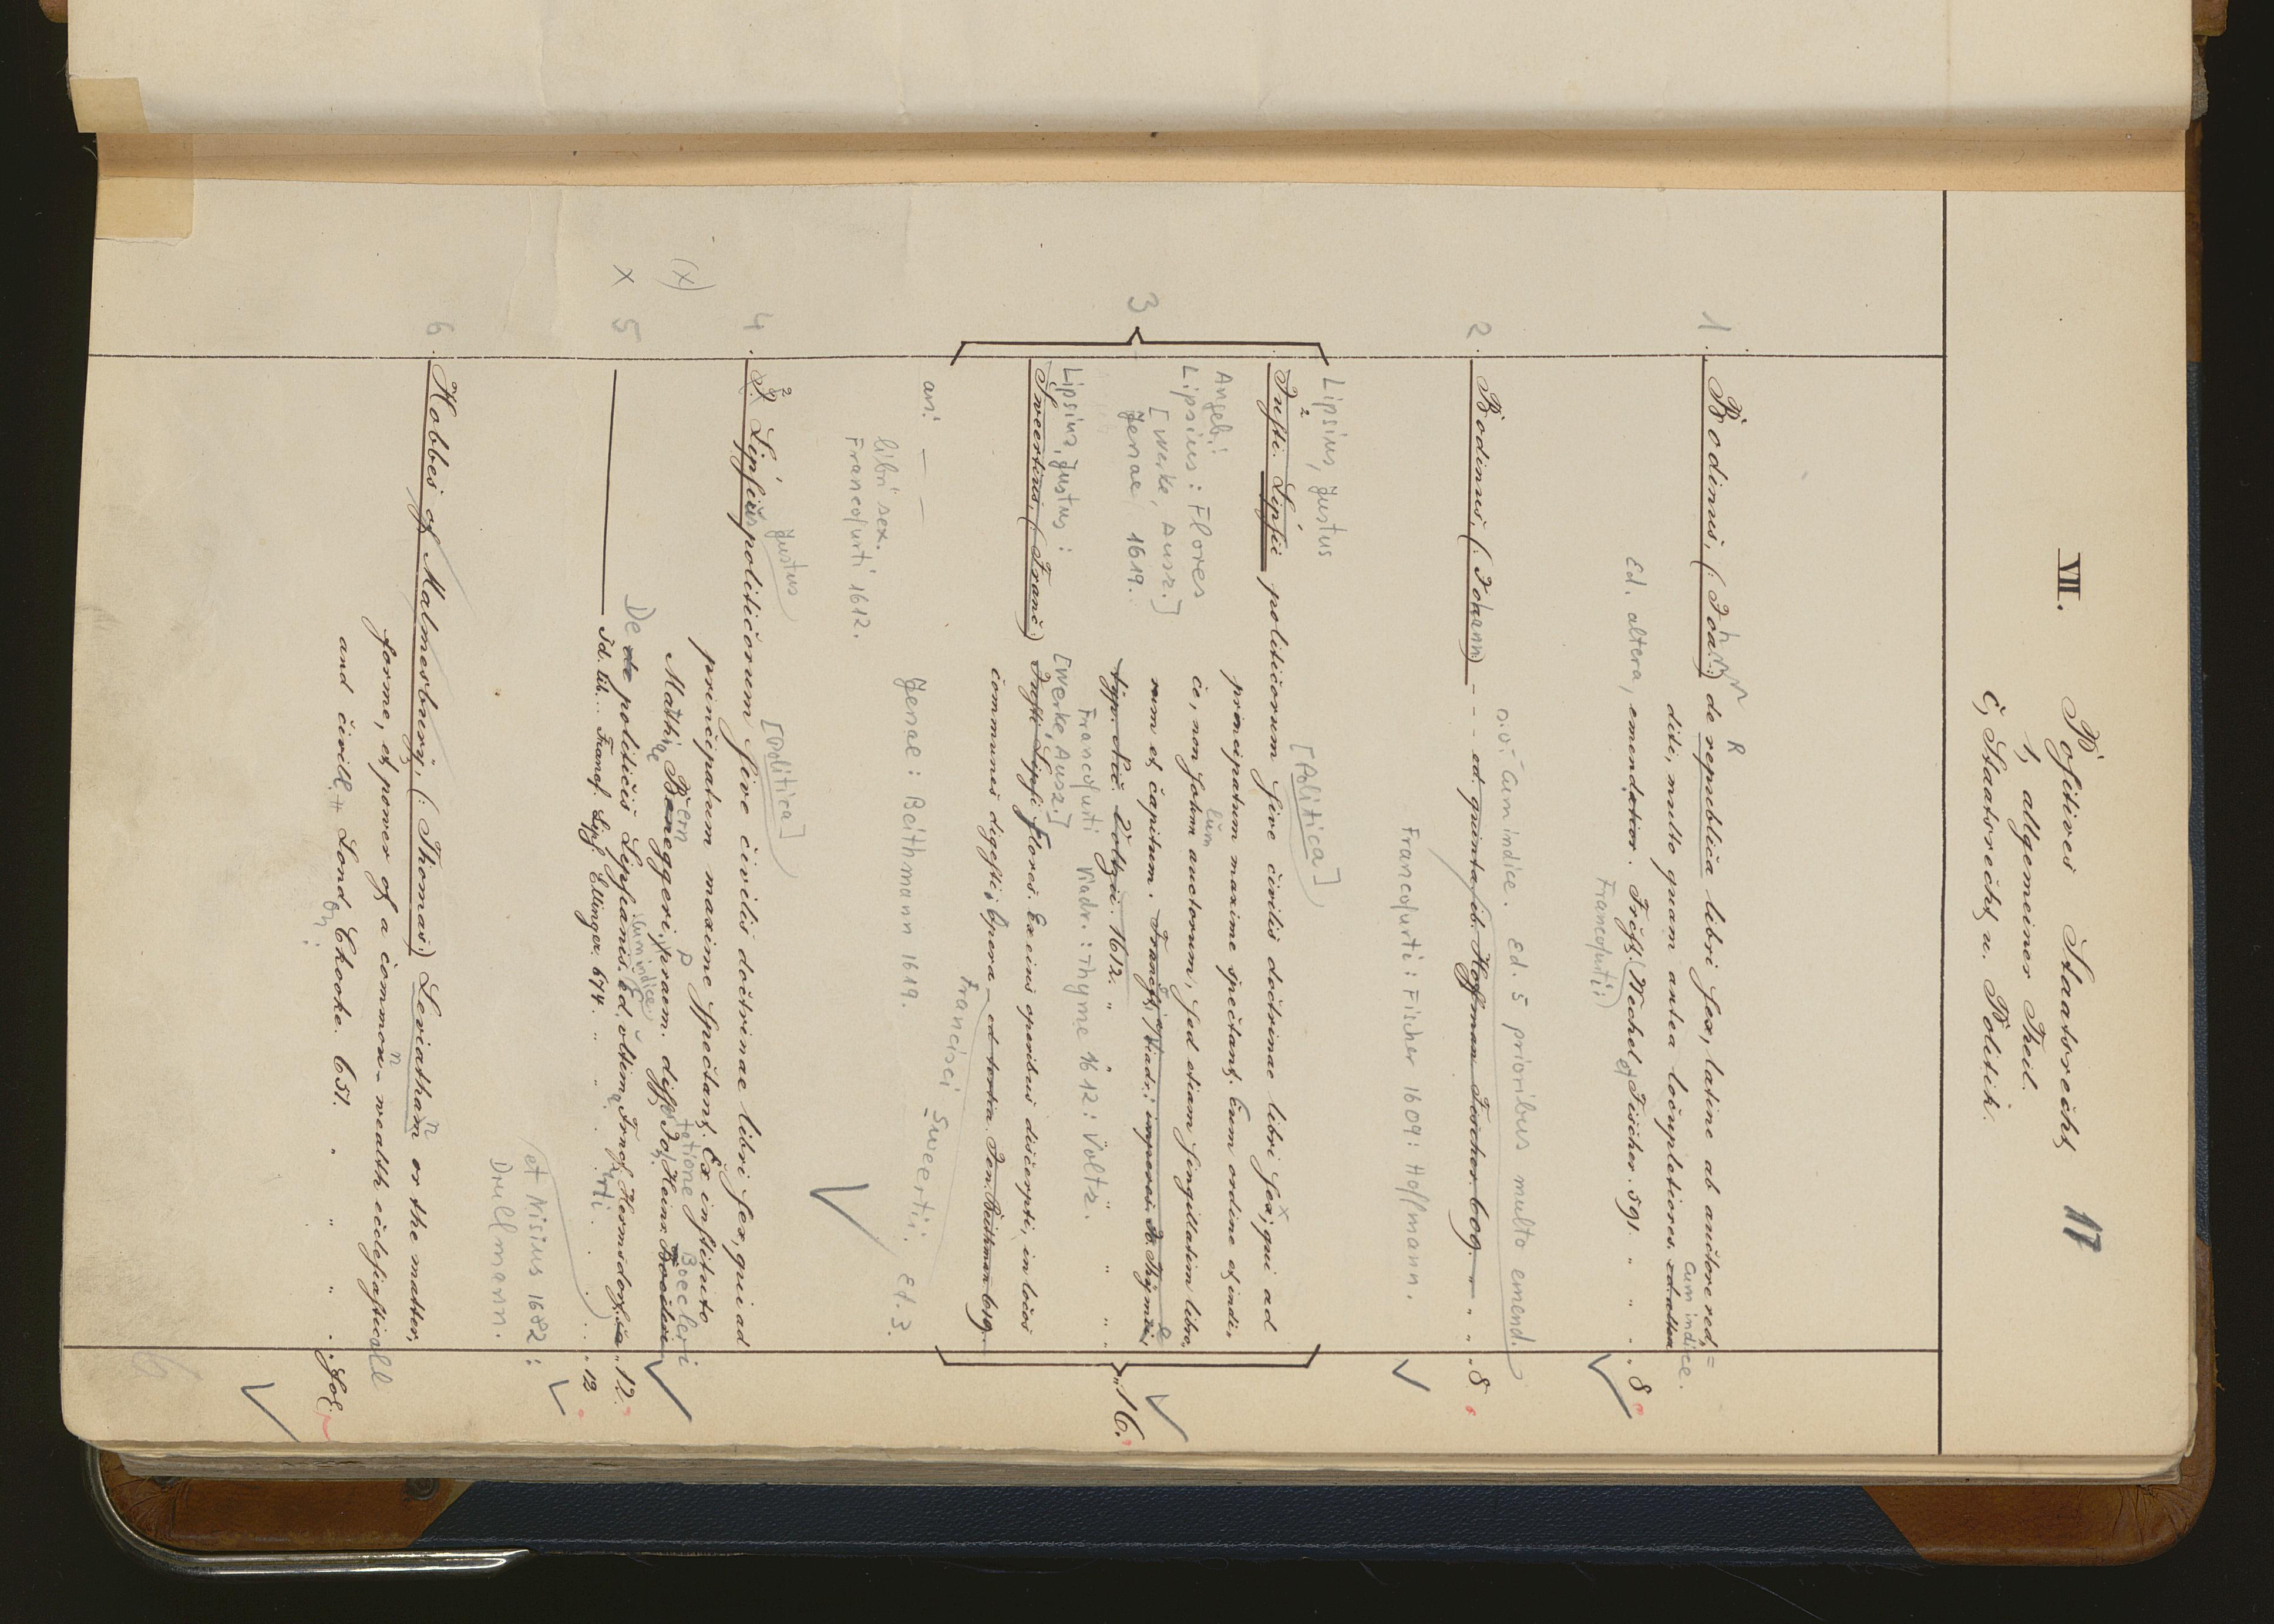 VII. Positives Staatsrecht 17
1, allgemeiner Theil.
c, Staatsrecht u. Politik.
1. Bodinus, (: Joa :) de republica libri sex, latine ab auctore red=
diti, multo quam antea locupletiores. ed. altera cum indice.
Ed. altera, emendatior. Frcft. Wechel et Fischer. 591. " " " 8
Francofurti:
o.O. Cum indice. Ed. 5 prioribus multo emend.
2. Bodinus, (: Johann :) - - ed. quinta, ib. Hoffman Fischer. 609. " " 8
Francofurti: Fischer 1609: Hoffmann.
Lipsius, Justus [Politica]
3 Justi Lipsii politicorum sive civilis doctrinae libri sex; qui ad
principatum maxime spectant. Cum ordine et indi-
Angeb:
Lipsius: Flores
[Werke, Ausz.]
Jenae 1619.
ce, non solum auctorum, sed etiam singillatim libro-
rum et capitum.
typ. Nic. Voltzii. 1612. " " " " 16.
Francofurti Viadr.: Thyme 1612: Voltz.
Lipsius, Justus: [Werke, Ausz.]
Sweertius, (: Franc :) Justi Lipsi Flores. Ex eius operibus discerpti, in locos
communes digesti, opera ed. tertia. Jen. Beithman 619.
Francisci Sweertii. Ed. 3.
an: — — Jenae: Beithmann 1619.
libri sex.
Francofurti 1612.
Justus [Politica]
4. J. Lipsius politicorum sive civilis doctrinae libri sex, qui ad
principatum maxime spectant. Ex instituto
(x) Mathiae Berneggeri, praem. dissertatione Joh. Heinr. Boecleri
De politicis Lipsianis. cum indice ed. ultima Francofurti Hermsdorf. 12.
x 5 ——— Id. lib. Francf. Lips. Ellinger. 674. " " " 12
et Nisius 1682:
Drullmann.
6. Hobbes of Malmesbury, (: Thomas :) Leviathan or the matter,
forme, et power of a common-wealth ecclesiasticall
and civill. London: Chooke. 651. " " " Fol.
6